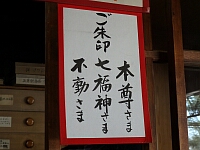 ご朱印
本尊さま
七福神さま
不動さま